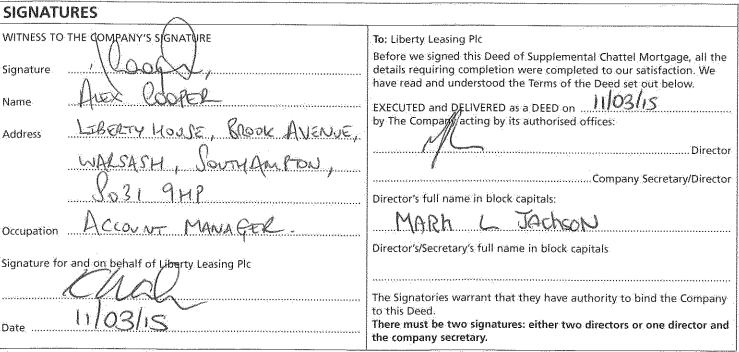 SIGNATURES
WITNESS TO THE COMPANY'S SIGNATURE
Signature
Name ALEX COOPER
Address LIBERTY HOUSE, BROOK AVENUE,
WARSASH, SOUTHAMPTON,
SO31 9HP
Occupation ACCOUNT MANAGER.
Signature for and on behalf of Liberty Leasing Plc
Date 11/03/15
To: Liberty Leasing Plc
Before we signed this Deed of Supplemental Chattel Mortgage, all the
details requiring completion were completed to our satisfaction. We
have read and understood the Terms of the Deed set out below.
EXECUTED and DELIVERED as a DEED on 11/03/15
by The Company acting by its authorised offices:
Director
Company Secretary/Director
Director's full name in block capitals:
MARK L JACKSON
Director's/Secretary's full name in block capitals
The Signatories warrant that they have authority to bind the Company
to this Deed.
There must be two signatures: either two directors or one director and
the company secretary.